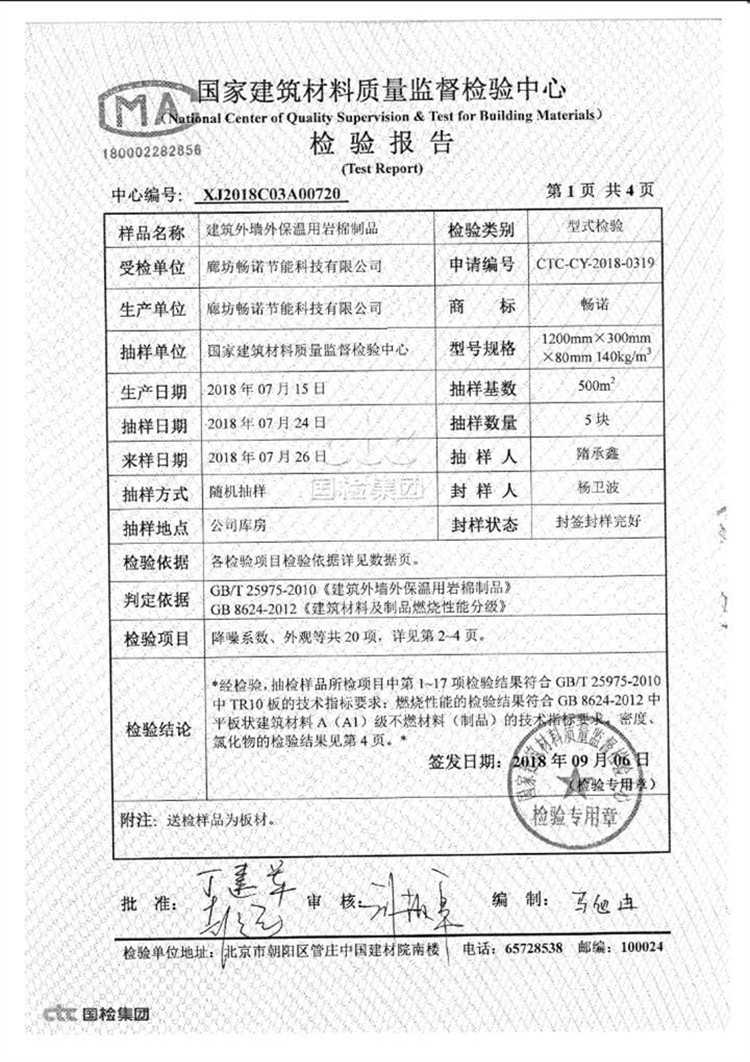 MA
国家建筑材料质量监督检验中心
(National Center of Quality Supervision & Test for Building Materials)
180002282856
检验报告
(Test Report)
中心编号: XJ2018C03A00720 第1页 共4页
样品名称 建筑外墙外保温用岩棉制品 检验类别 型式检验
受检单位 廊坊畅诺节能科技有限公司 申请编号 CTC-CY-2018-0319
生产单位 廊坊畅诺节能科技有限公司 商标 畅诺
抽样单位 国家建筑材料质量监督检验中心 型号规格 1200mm×300mm
×80mm 140kg/m³
生产日期 2018年07月15日 抽样基数 500m²
抽样日期 2018年07月24日 抽样数量 5块
来样日期 2018年07月26日 抽样人 隋承鑫
抽样方式 随机抽样 封样人 杨卫波
国检集团
抽样地点 公司库房 封样状态 封签封样完好
检验依据 各检验项目检验依据详见数据页。
判定依据 GB/T 25975-2010《建筑外墙外保温用岩棉制品》
GB 8624-2012《建筑材料及制品燃烧性能分级》
检验项目 降噪系数、外观等共20项，详见第2~4页。
检验结论 *经检验，抽检样品所检项目中第1~17项检验结果符合GB/T 25975-2010
中TR10板的技术指标要求；燃烧性能的检验结果符合GB 8624-2012中
平板状建筑材料A（A1）级不燃材料（制品）的技术指标要求。密度、
氯化物的检验结果见第4页。*
签发日期：2018年09月06日
（检验专用章）
国家建筑材料质量监督检验中心
检验专用章
附注：送检样品为板材。
批准： 审核： 编制：
检验单位地址：北京市朝阳区管庄中国建材院南楼 电话：65728538 邮编：100024
ctc 国检集团